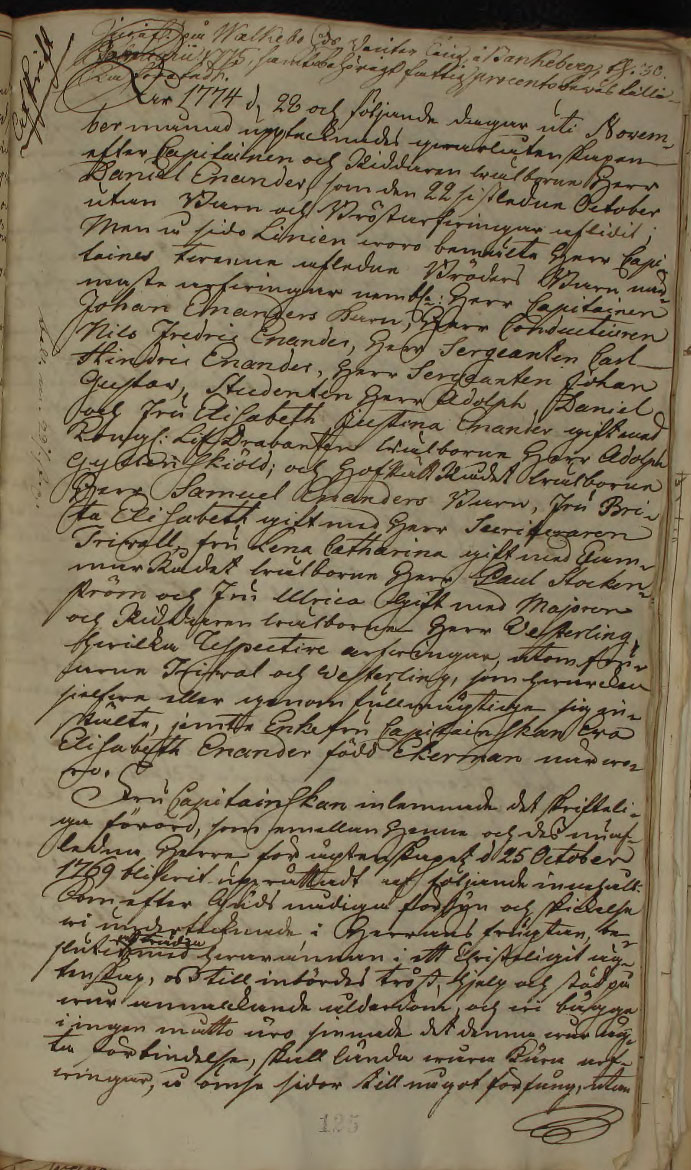 Afskrift
Walkebo i Bankeberg, d. 30.
Januarii 1775, fattig procenten
År 1774 d. 28 och följande dagar uti Novem-
ber månad upptecknades qwarlåtenskapen
efter Capitainen och Riddaren wälborne Herr
Daniel Enander, som den 22 sistledne October
utan Barn och Bröstarfwingar aflidit;
Men å sido Linien woro bemälte Herr Capi-
taines trenne afledne Bröders Barn näd-
maste arfwingar nembl: Herr Capitainen
Johan Enanders Barn, Herr Conducteuren
Nils Fredric Enander, Herr Sergeanten Carl
Hindric Enander, Herr Sergeanten Johan
Gustav, Studenten Herr Adolph Daniel
och Fru Elisabeth Justina Enander gift med
Kongl: Lif Drabanten wälborne Herr Adolph
Gyllenskiöld; och Hofrätts Rådet wälborne
Herr Samuel Enanders Barn, Fru Bri-
ta Elisabeth gift med Herr Secreteraren
Triwall, fru Lena Catharina gift med Cam-
mar Rådet wälborne Herr Paul Stocken-
ström och Fru Ulrica Gift med Majoren
och Riddaren wälborne Herr Westerling,
hwilka respective arfwingar, utom fru-
arne Triwal och Westerling, som hwarcken
sielfwa eller genom fullmägtige sig in-
stälte, jemte Enkefru Capitainskan Eva
Elisabeth Enander född Ekerman närwo-
ro.
Fru Capitainskan inlemnade det skriftel-
iga förord, som emellan Henne och des nu af-
ledna Herre för ägtenskapet d 25 October
1769 blifwit uprättadt af följande innehåll:
Som efter Guds nådiga försyn och skickelse
wi undertecknade i Herrans fruktan, be-
slutit med hwarannan i ett Christeligit äg-
tenskap, oss till inbördes tröst, hjelp och stöd på
wår annalkande ålderdom, och wi bägge
i ingen måtto äro sinnade det denna wår äg-
ta förbindelse, skall lända wåra kära arf-
wingar, å ömse sidor till något förfång, utan
125